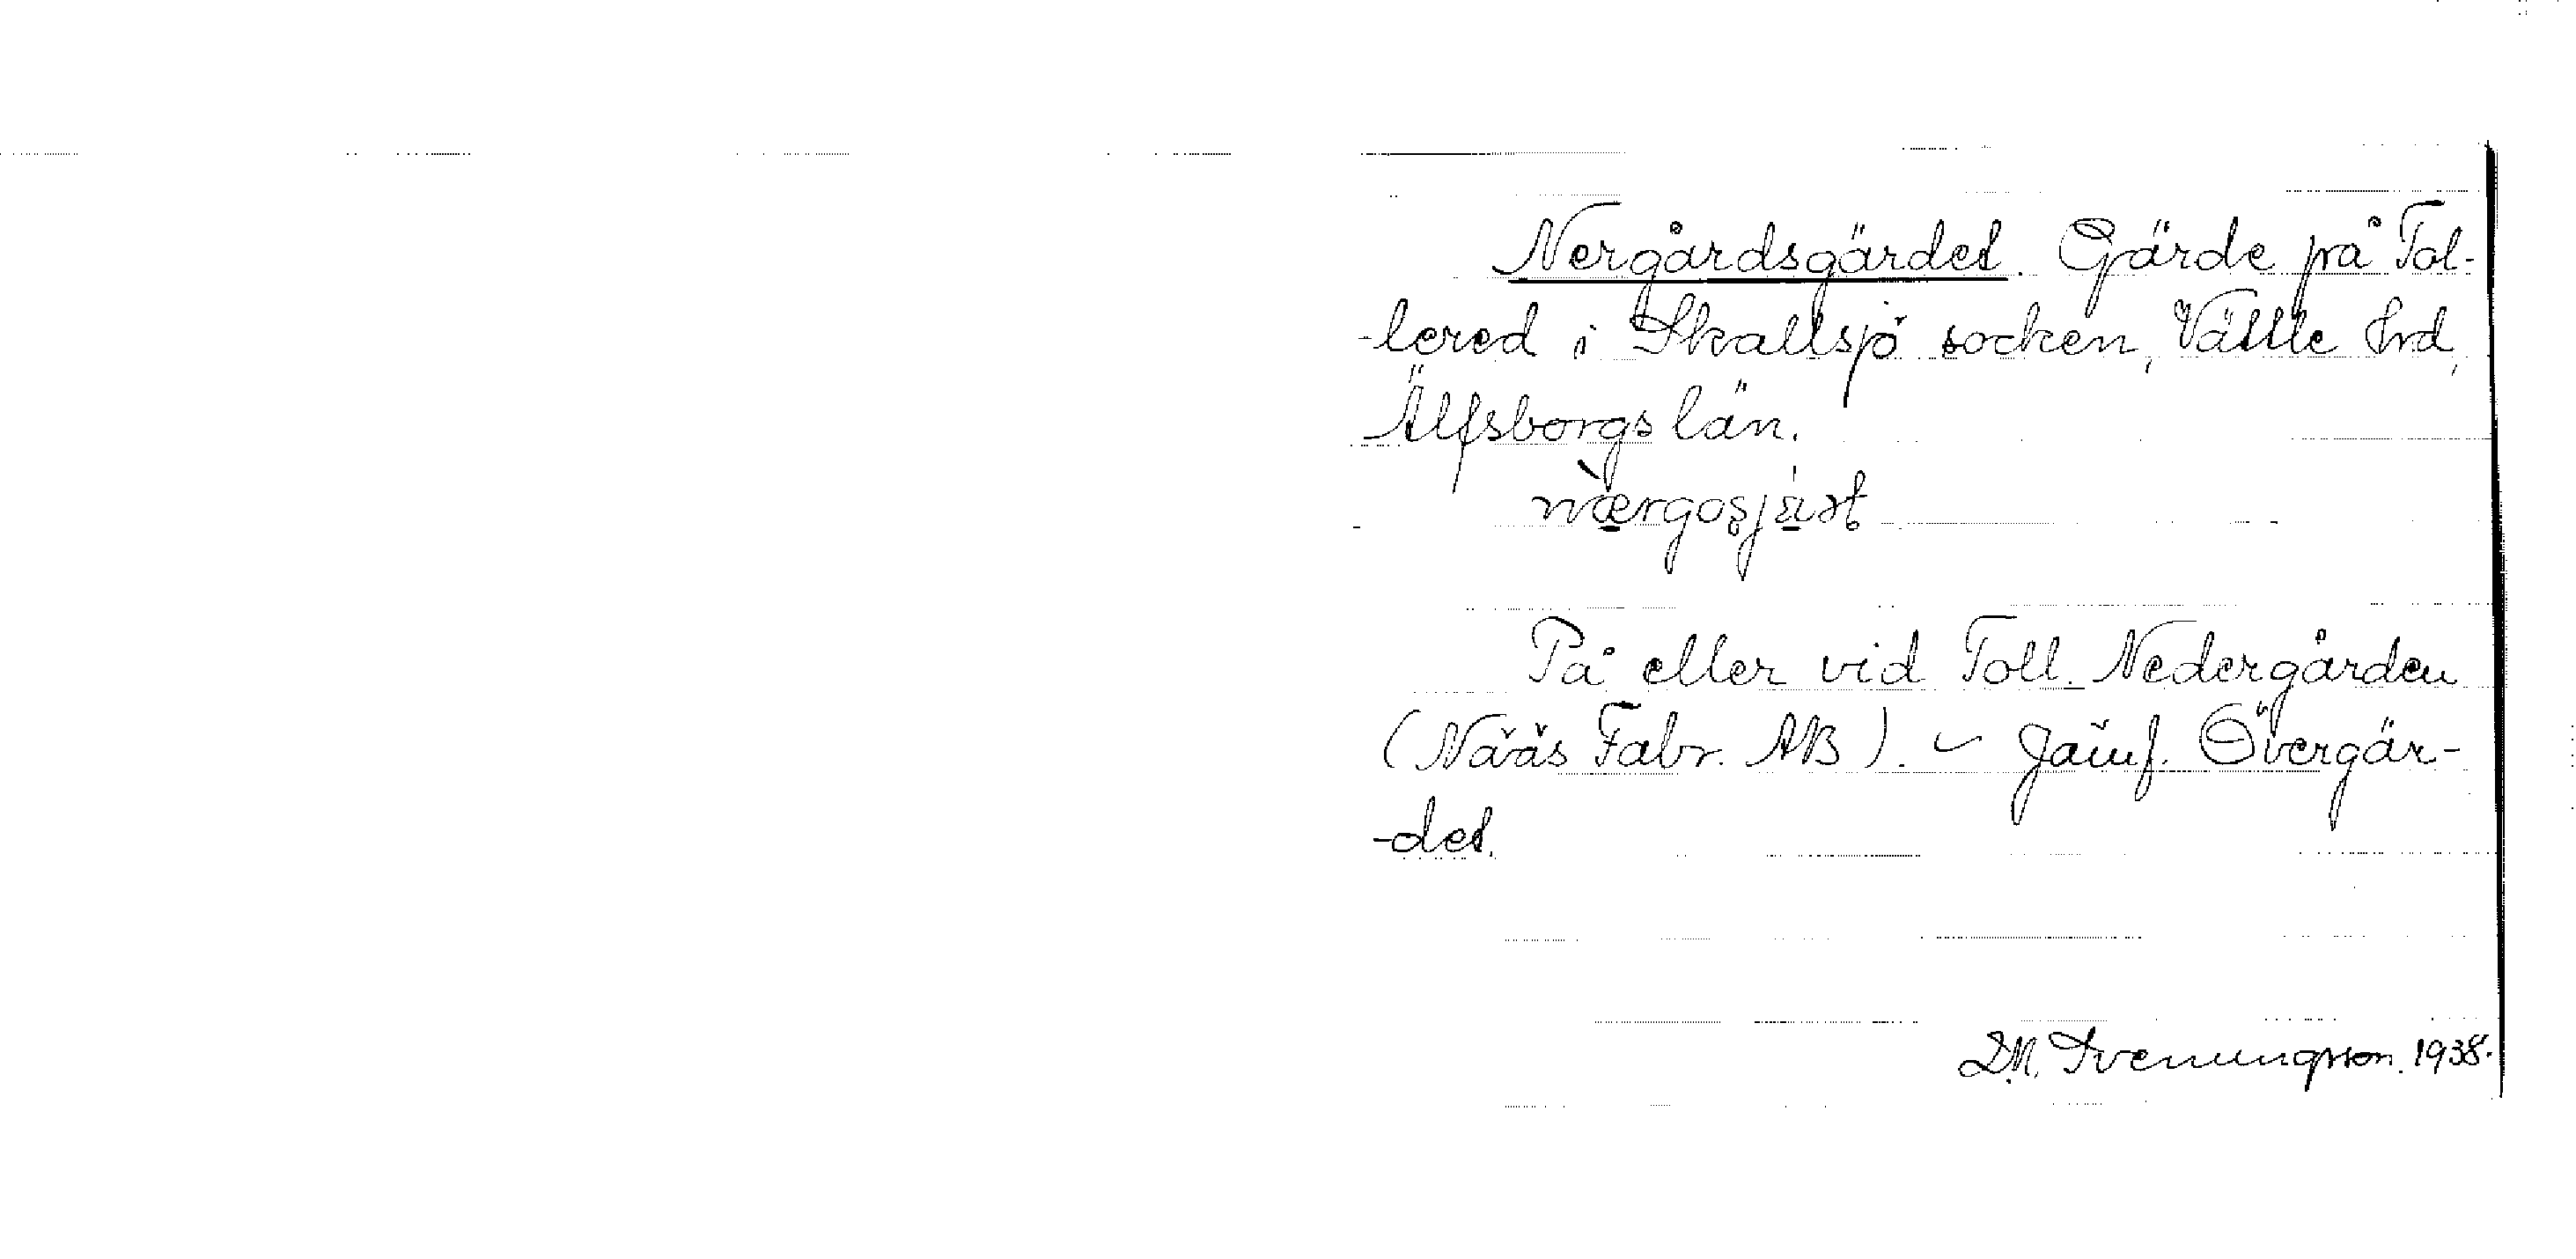 Nergårdsgärdet. Gärde på Tol-
-lered i Skallsjö socken, Vättle hrd,
Älfsborgs län.
På eller vid Toll. Nedergården
(Nääs Fabr. AB). – Jämf. Övergär-
-det.
D.M. Svenungsson. 1938.